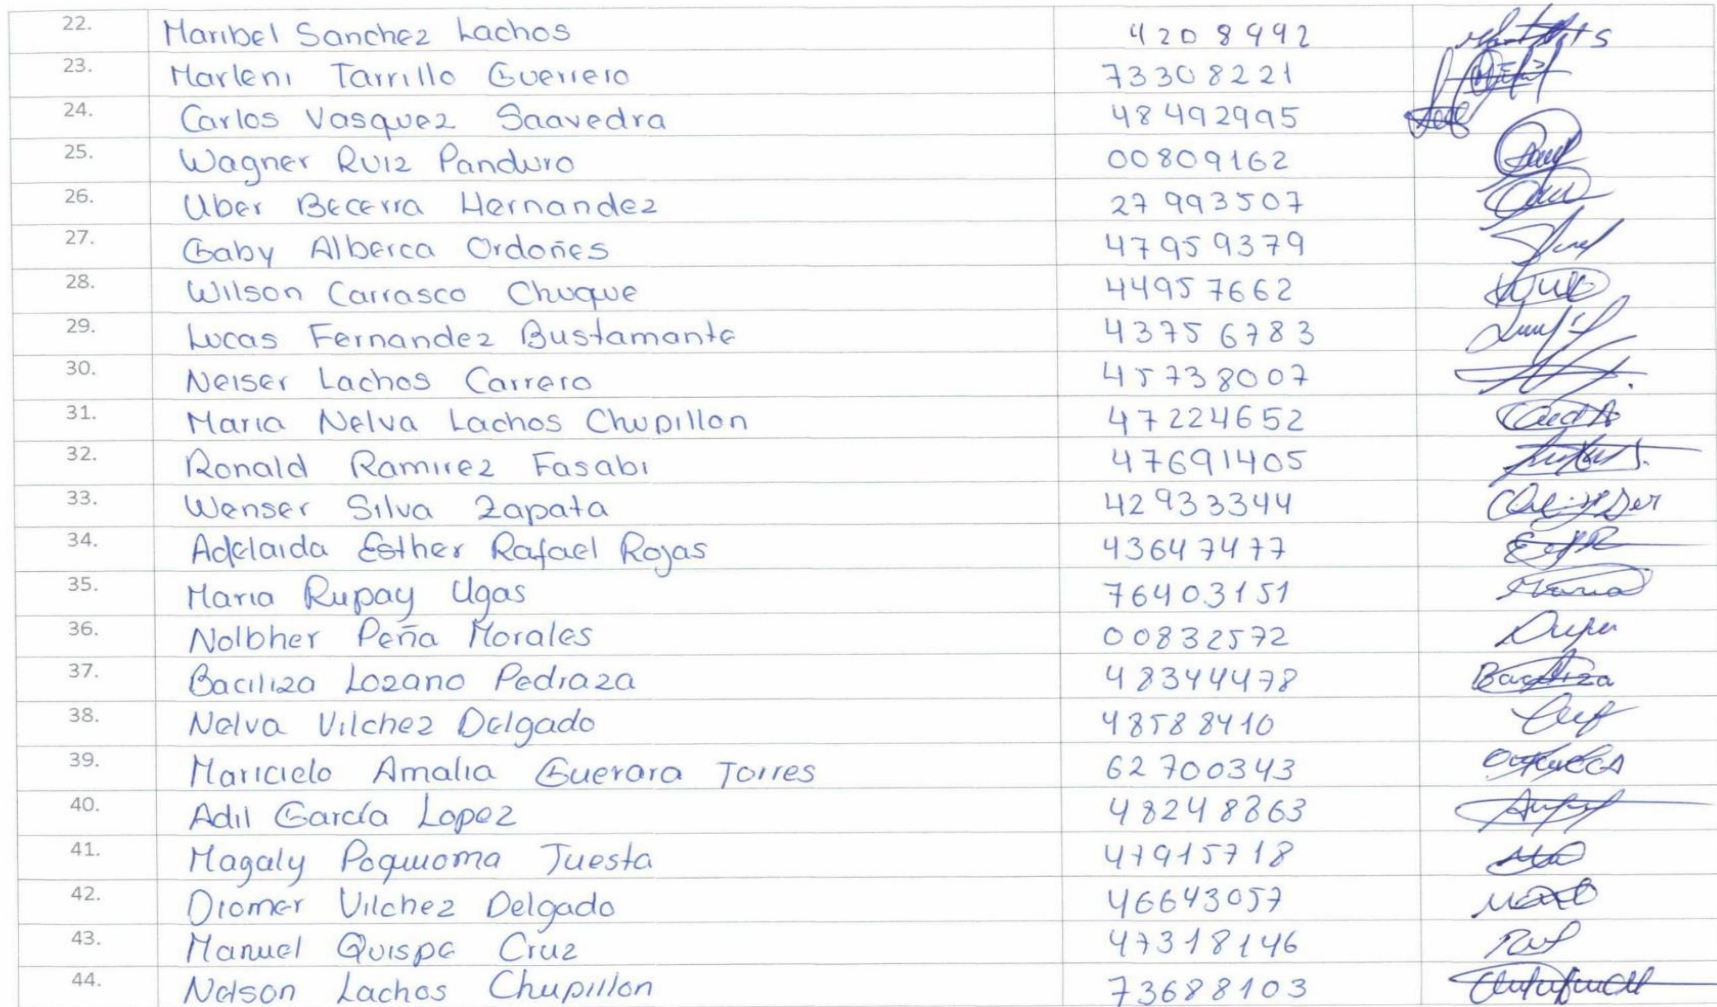 22. Maribel Sanchez Lachos 4208992
23. Marleni Tarrillo Guerrero 73308221
24. Carlos Vasquez Saavedra 48492995
25. Wagner Ruiz Panduro 00809162
26. Uber Becerra Hernandez 27993507
27. Gaby Alberca Ordoñes 47959379
28. Wilson Carrasco Chuque 44957662
29. Lucas Fernandez Bustamante 43756783
30. Neiser Lachos Carrero 45738007
31. Maria Nelva Lachos Chupillon 47224652
32. Ronald Ramirez Fasabi 47691405
33. Wenser Silva Zapata 42933344
34. Adelaida Esther Rafael Rojas 43647477
35. Maria Rupay Ugas 76403151 Maria
36. Nolbher Peña Morales 00832572
37. Baciliza Lozano Pedraza 48344478
38. Nelva Vilchez Delgado 48588410
39. Maricielo Amalia Guerara Torres 62700343
40. Adil García Lopez 48248863
41. Magaly Poquioma Tuesta 47915718
42. Diomer Vilchez Delgado 46643057
43. Manuel Quispe Cruz 47318146
44. Nelson Lachos Chupillon 73688103